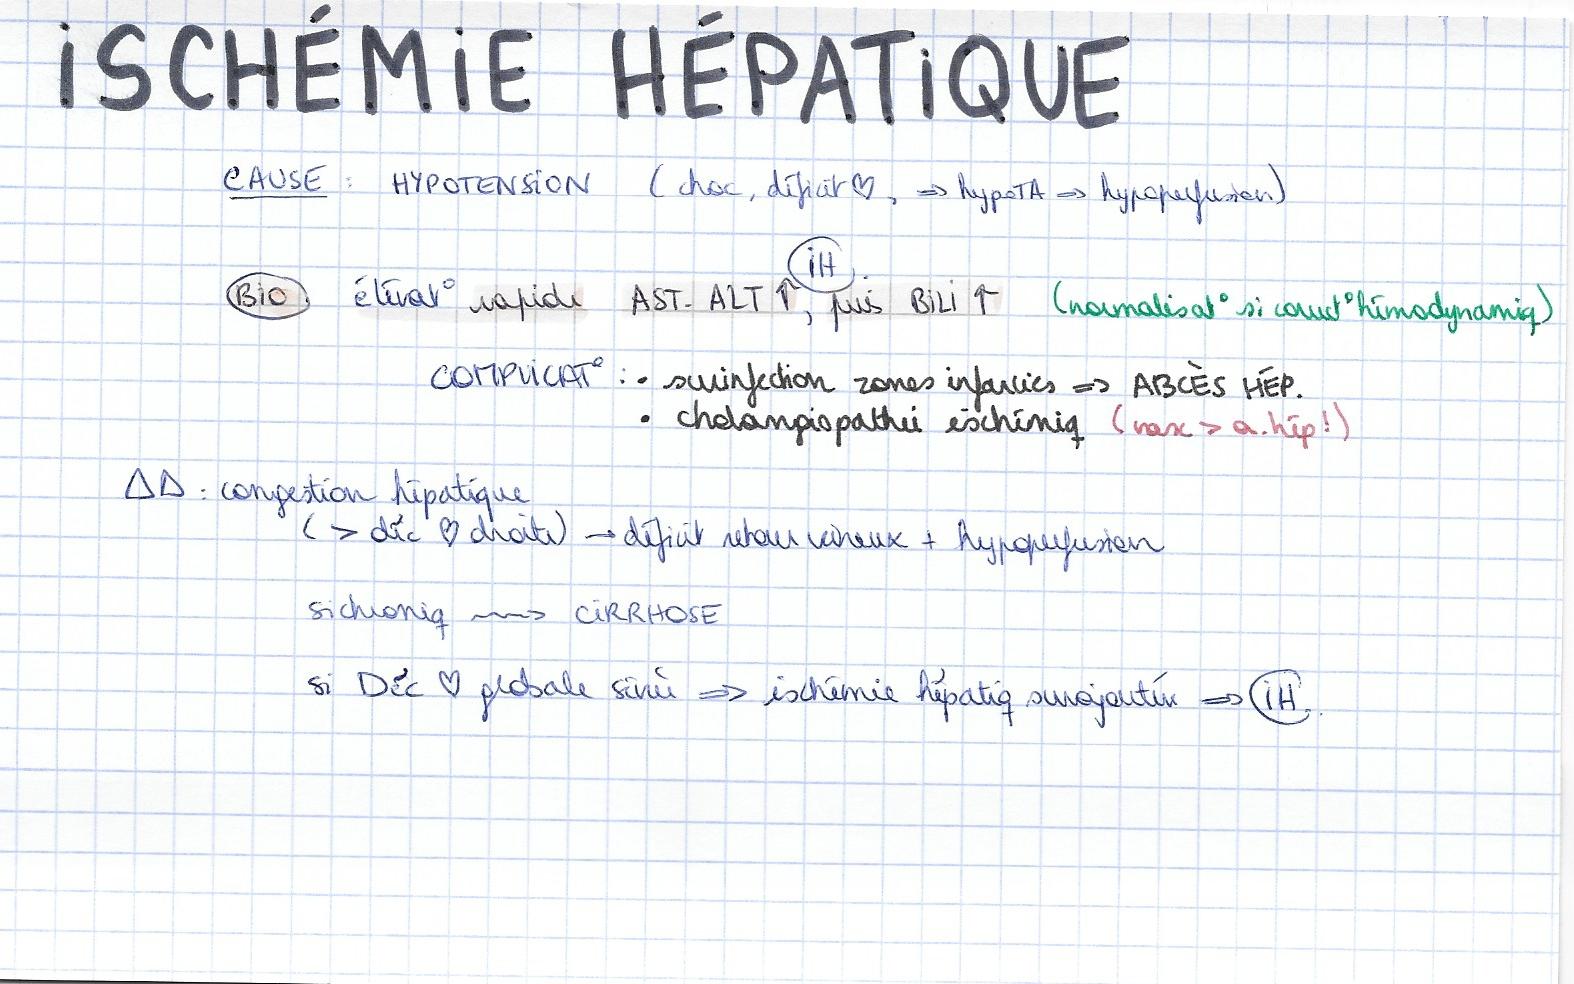 iSCHÉMiE HÉPATiQUE
CAUSE : HYPOTENSiON (choc, déficit ♡, => hypoTA => hypoperfusion)
iH
BiO élévat° rapide AST- ALT ↑, puis BiLi ↑ (normalisat° si correct° hémodynamiq)
COMPLiCAT° : • surinfection zones infarcies => ABCÈS HÉP.
• cholangiopathie ischémiq (vasc > a. hép!)
ΔD : congestion hépatique
(> déc ♡ droite) → déficit retour veineux + hypoperfusion
si chroniq ~~> CiRRHOSE
si Déc ♡ globale sévère => ischémie hépatiq surajoutée => iH